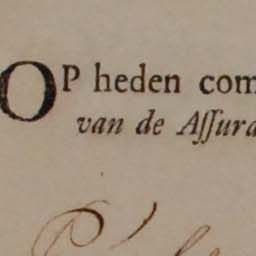 OP heden com
van de Aſſura